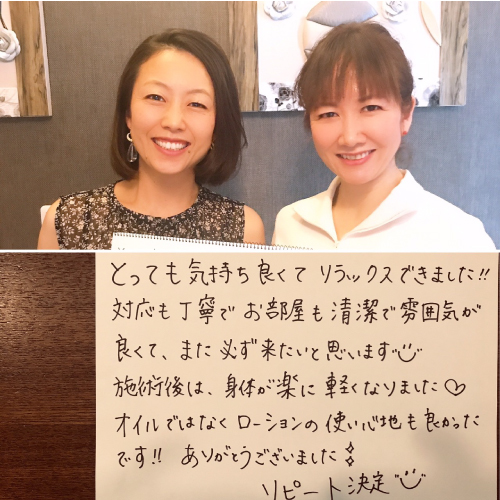 とっても気持ち良くてリラックスできました!!
対応も丁寧でお部屋も清潔で雰囲気が
良くて、また必ず来たいと思います
施術後は、身体が楽に軽くなりました♡
オイルではなくローションの使い心地も良かった
です!! ありがとうございました
リピート決定